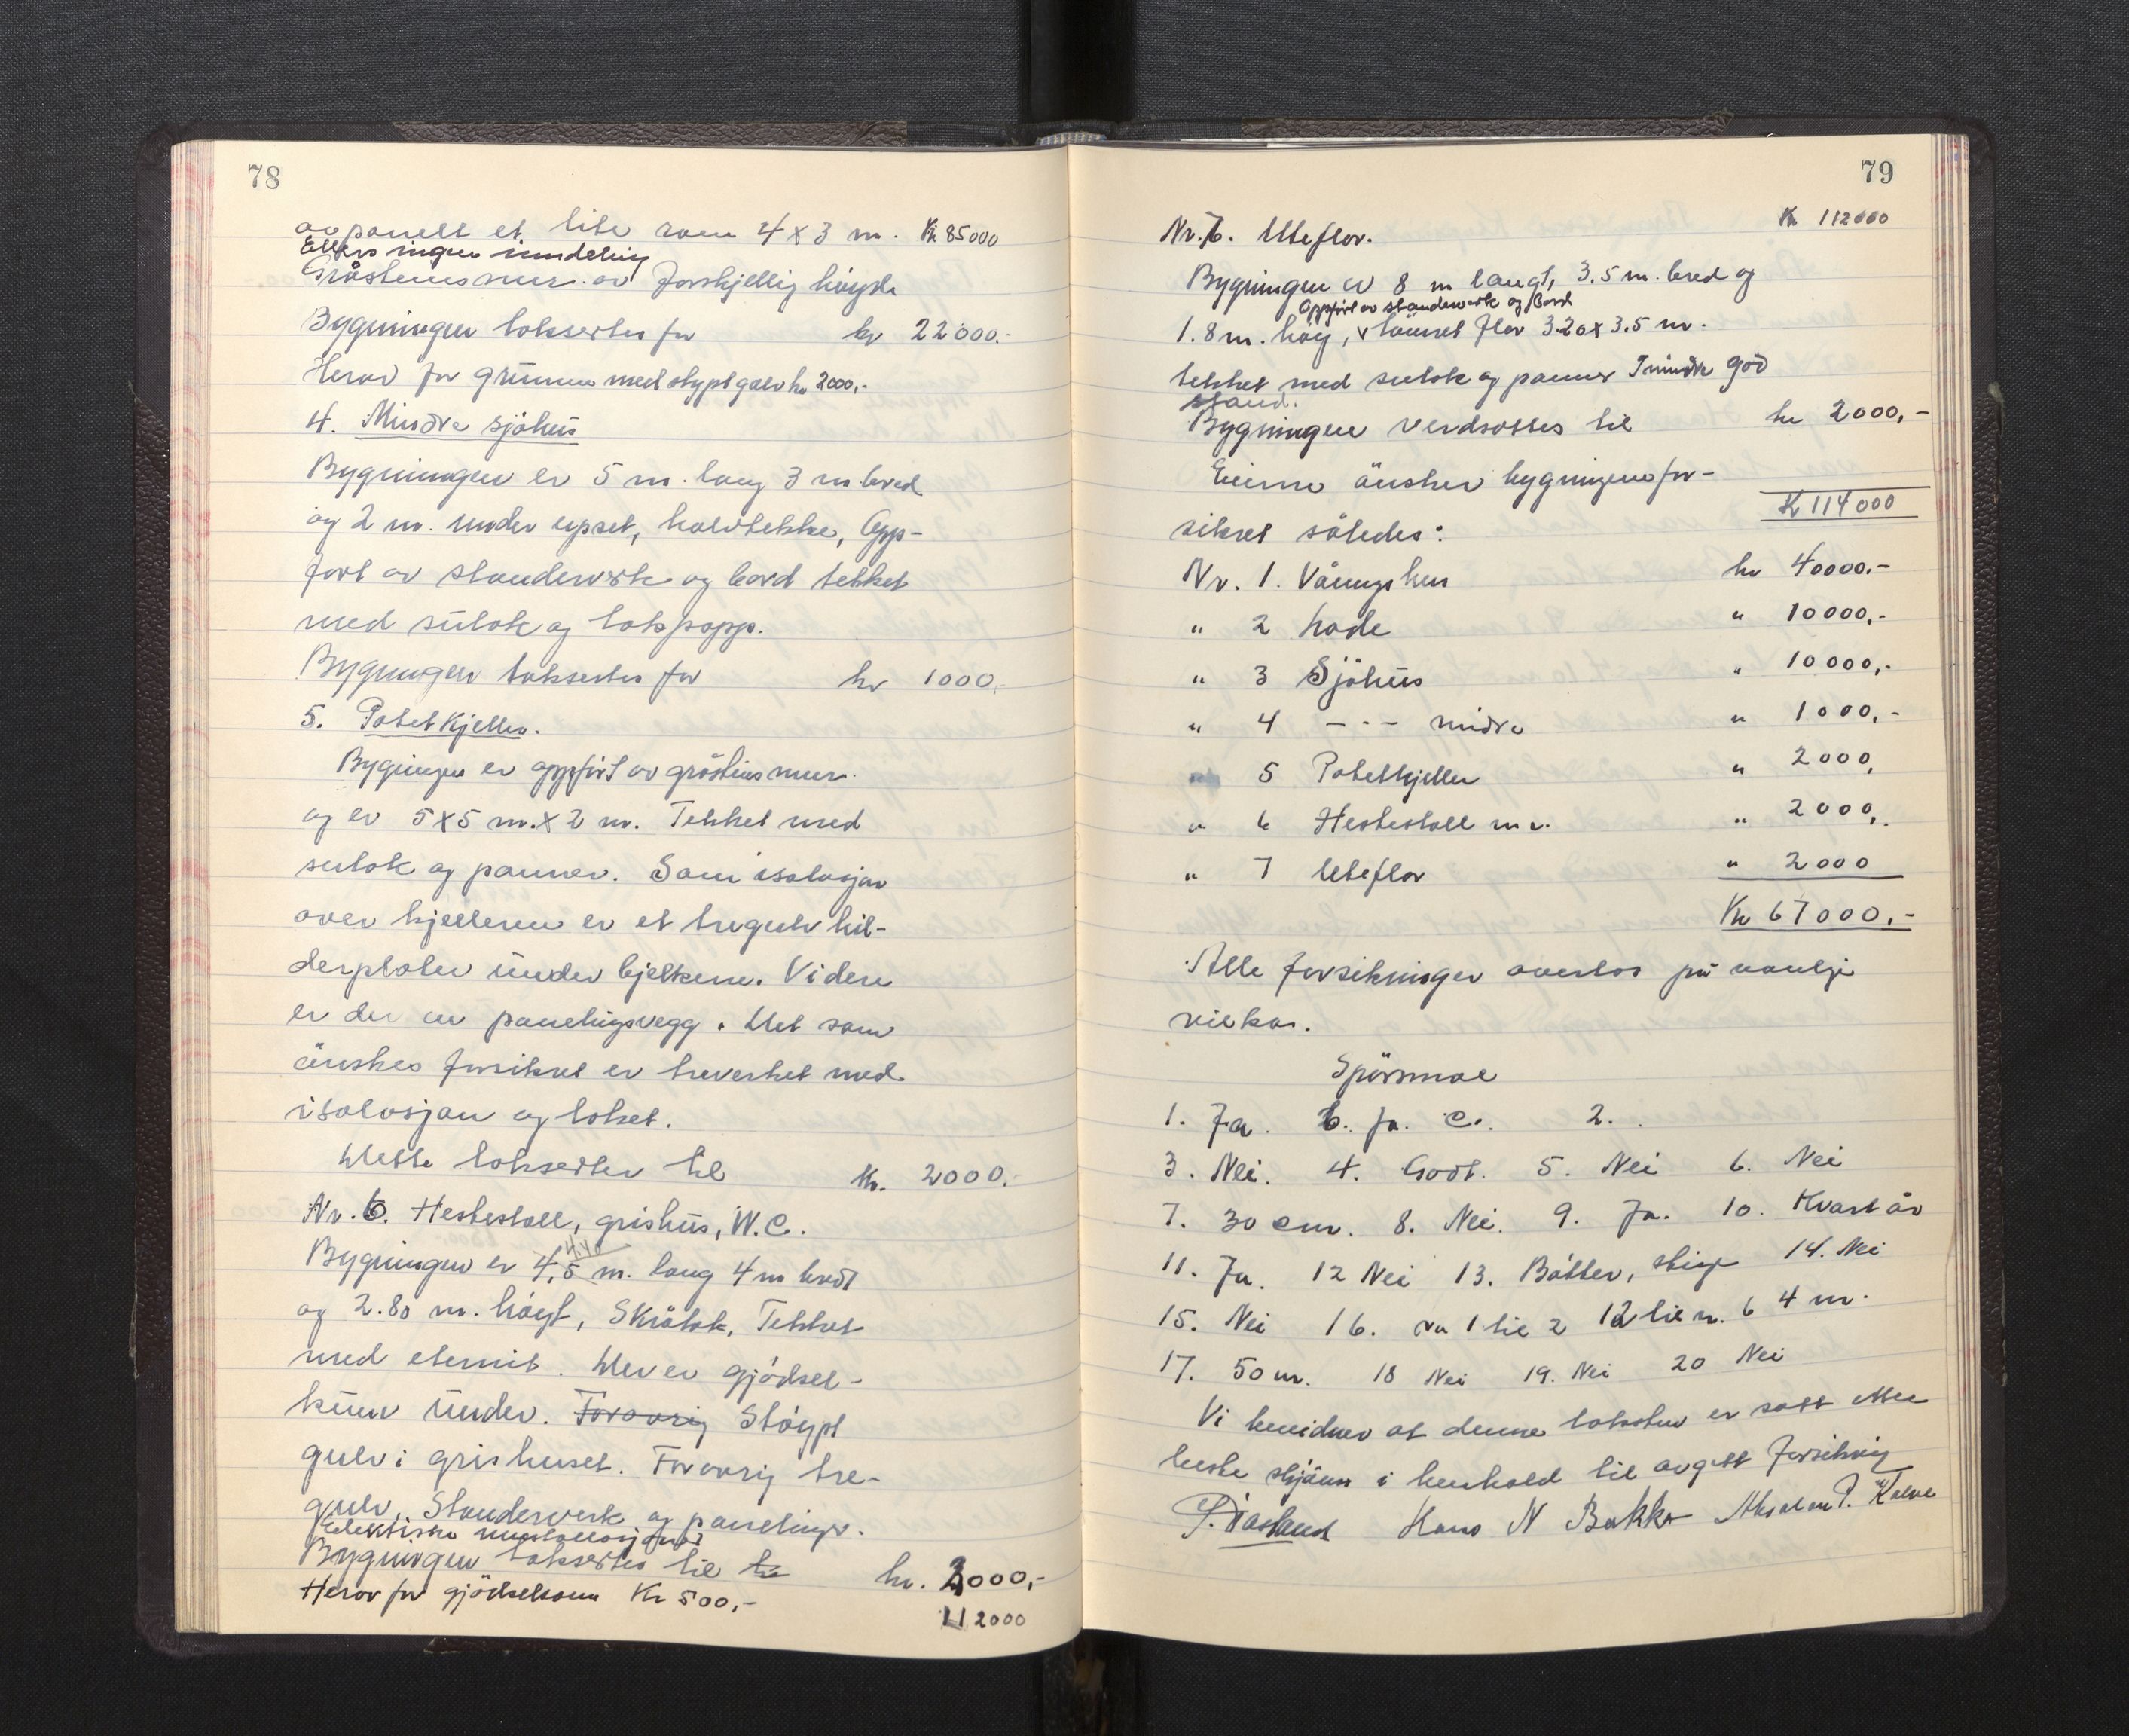 78
av panelt et lite rom 4 x 3 m. Kr 85000
Ellers ingen inndeling
Gråsteinsmur av forskjellig høyde
Bygningen taksertes for kr 22000.-
Herav for grunnen med støpt golv kr 2000,-
4. Mindre sjöhus
Bygningen er 5 m. lang 3 m. bred
og 2 m. under upset, halvtekke, Opp-
fört av standerverk og bord tekket
med sutak og takpapp.
Bygningen takserte for kr 1000.-
5. Potetkjeller.
Bygningen er oppfört av gråsteinsmur.
og er 5x5 m. x 2 m. Tekket med
sutak og panner. Som isolasjon
over kjelleren er et tregulv hil-
derplater under bjelkene. Videre
er der en panelingsvegg. Det som
önskes forsikret er treverket med
isolasjon og taket.
Dette takserter til kr. 2000.-
Nr. 6. Hestestall, grishus, W.C.
4.40
Bygningen er 4,5 m. lang 4 m bredt
og 2.80 m. höyt, Skråtak, Tekket
med eternit. Der er gjödsel-
kum under. Forovrig Stöypt
gulv i grishuset. Forovrig tre-
gulv, Standerverk og panelinger.
Elektriske installasjoner
Bygningen takserter til kr kr. 3000,-
Herav for gjödselkum Kr 500,-
112000
79
Kr 112000
Nr. 7. Uteflor.
Bygningen er 8 m langt, 3.5 m. bred og
Oppfört av standerverk og Bord
1.8 m. höy, v tömret flor 3.20 x 3.5 m.
tekket med sutak og panner I mindre god
stand.
Bygningen verdsattes til kr 2000,-
Eierne önsker bygningene for-
Kr 114000
sikret således:
Nr. 1. Våningshus kr 40000.-
" 2 Lade " 10000,-
" 3 Sjöhus " 10000,-
" 4 - - - midre " 1000,-
5 Potetkjeller " 2000,
" 6 Hestestall m.v. " 2000,.
" 7 Uteflor " 2000
Kr 67000.-
Alle forsikringer overlas på vanlige
vilkår.
Spörsmål
1. Ja. b. Ja. c. 2.
3. Nei. 4. Godt. 5. Nei 6. Nei
7. 30 cm. 8. Nei. 9. Ja. 10. Kvart år
11. Ja. 12 Nei 13. Bötter, stige 14. Nei
15. Nei 16. Nr 1 til 2 12 til n. 6 4 m.
17. 50 m. 18 Nei 19. Nei 20 Nei
Vi bevidner at denne taksten er satt etter
beste skjönn i henhold til avgitt forsikring
Hans N Bakke Absalon P. Kalve